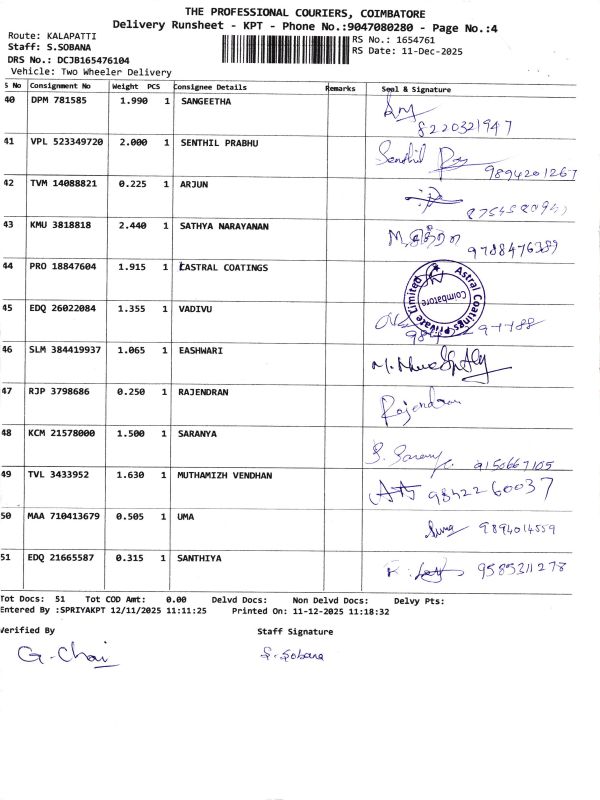 THE PROFESSIONAL COURIERS, COIMBATORE
Delivery Runsheet - KPT - Phone No.:9047080280 - Page No.:4
Route: KALAPATTI
Staff: S.SOBANA
DRS No.: DCJB165476104
Vehicle: Two Wheeler Delivery
RS No.: 1654761
RS Date: 11-Dec-2025
S No Consignment No Weight PCS Consignee Details Remarks Seal & Signature
40 DPM 781585 1.990 1 SANGEETHA
8220321947
41 VPL 523349720 2.000 1 SENTHIL PRABHU Senthil
9894201267
42 TVM 14088821 0.225 1 ARJUN
43 KMU 3818818 2.440 1 SATHYA NARAYANAN
9788476389
44 PRO 18847604 1.915 1 CASTRAL COATINGS
Astral Coatings Private Limited
Coimbatore
45 EDQ 26022084 1.355 1 VADIVU
46 SLM 384419937 1.065 1 EASHWARI
47 RJP 3798686 0.250 1 RAJENDRAN Rajendran
48 KCM 21578000 1.500 1 SARANYA S. Saranya
9150667105
49 TVL 3433952 1.630 1 MUTHAMIZH VENDHAN 9842260037
50 MAA 710413679 0.505 1 UMA Uma 9894014559
51 EDQ 21665587 0.315 1 SANTHIYA 9585311278
Tot Docs: 51 Tot COD Amt: 0.00 Delvd Docs: Non Delvd Docs: Delvy Pts:
Entered By :SPRIYAKPT 12/11/2025 11:11:25 Printed On: 11-12-2025 11:18:32
Verified By Staff Signature
G. Chai S. Sobana